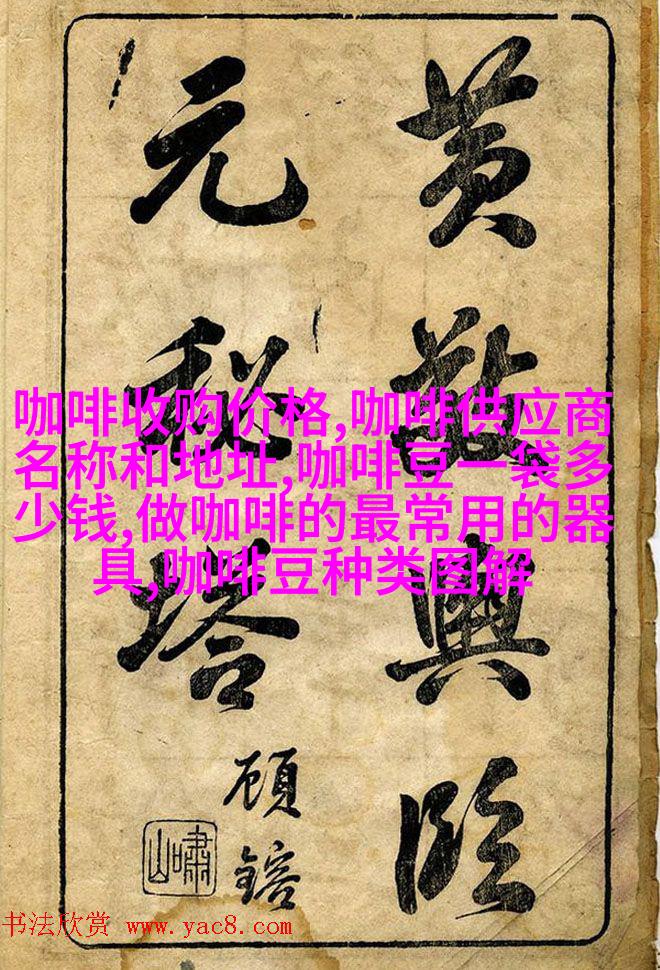 黃敬輿臨
元秘塔
顧鎔
嘯山
咖啡收购价格,咖啡供应商
名称和地址,咖啡豆一袋多
少钱,做咖啡的最常用的器
具,咖啡豆种类图解
书法欣赏 www.yac8.com